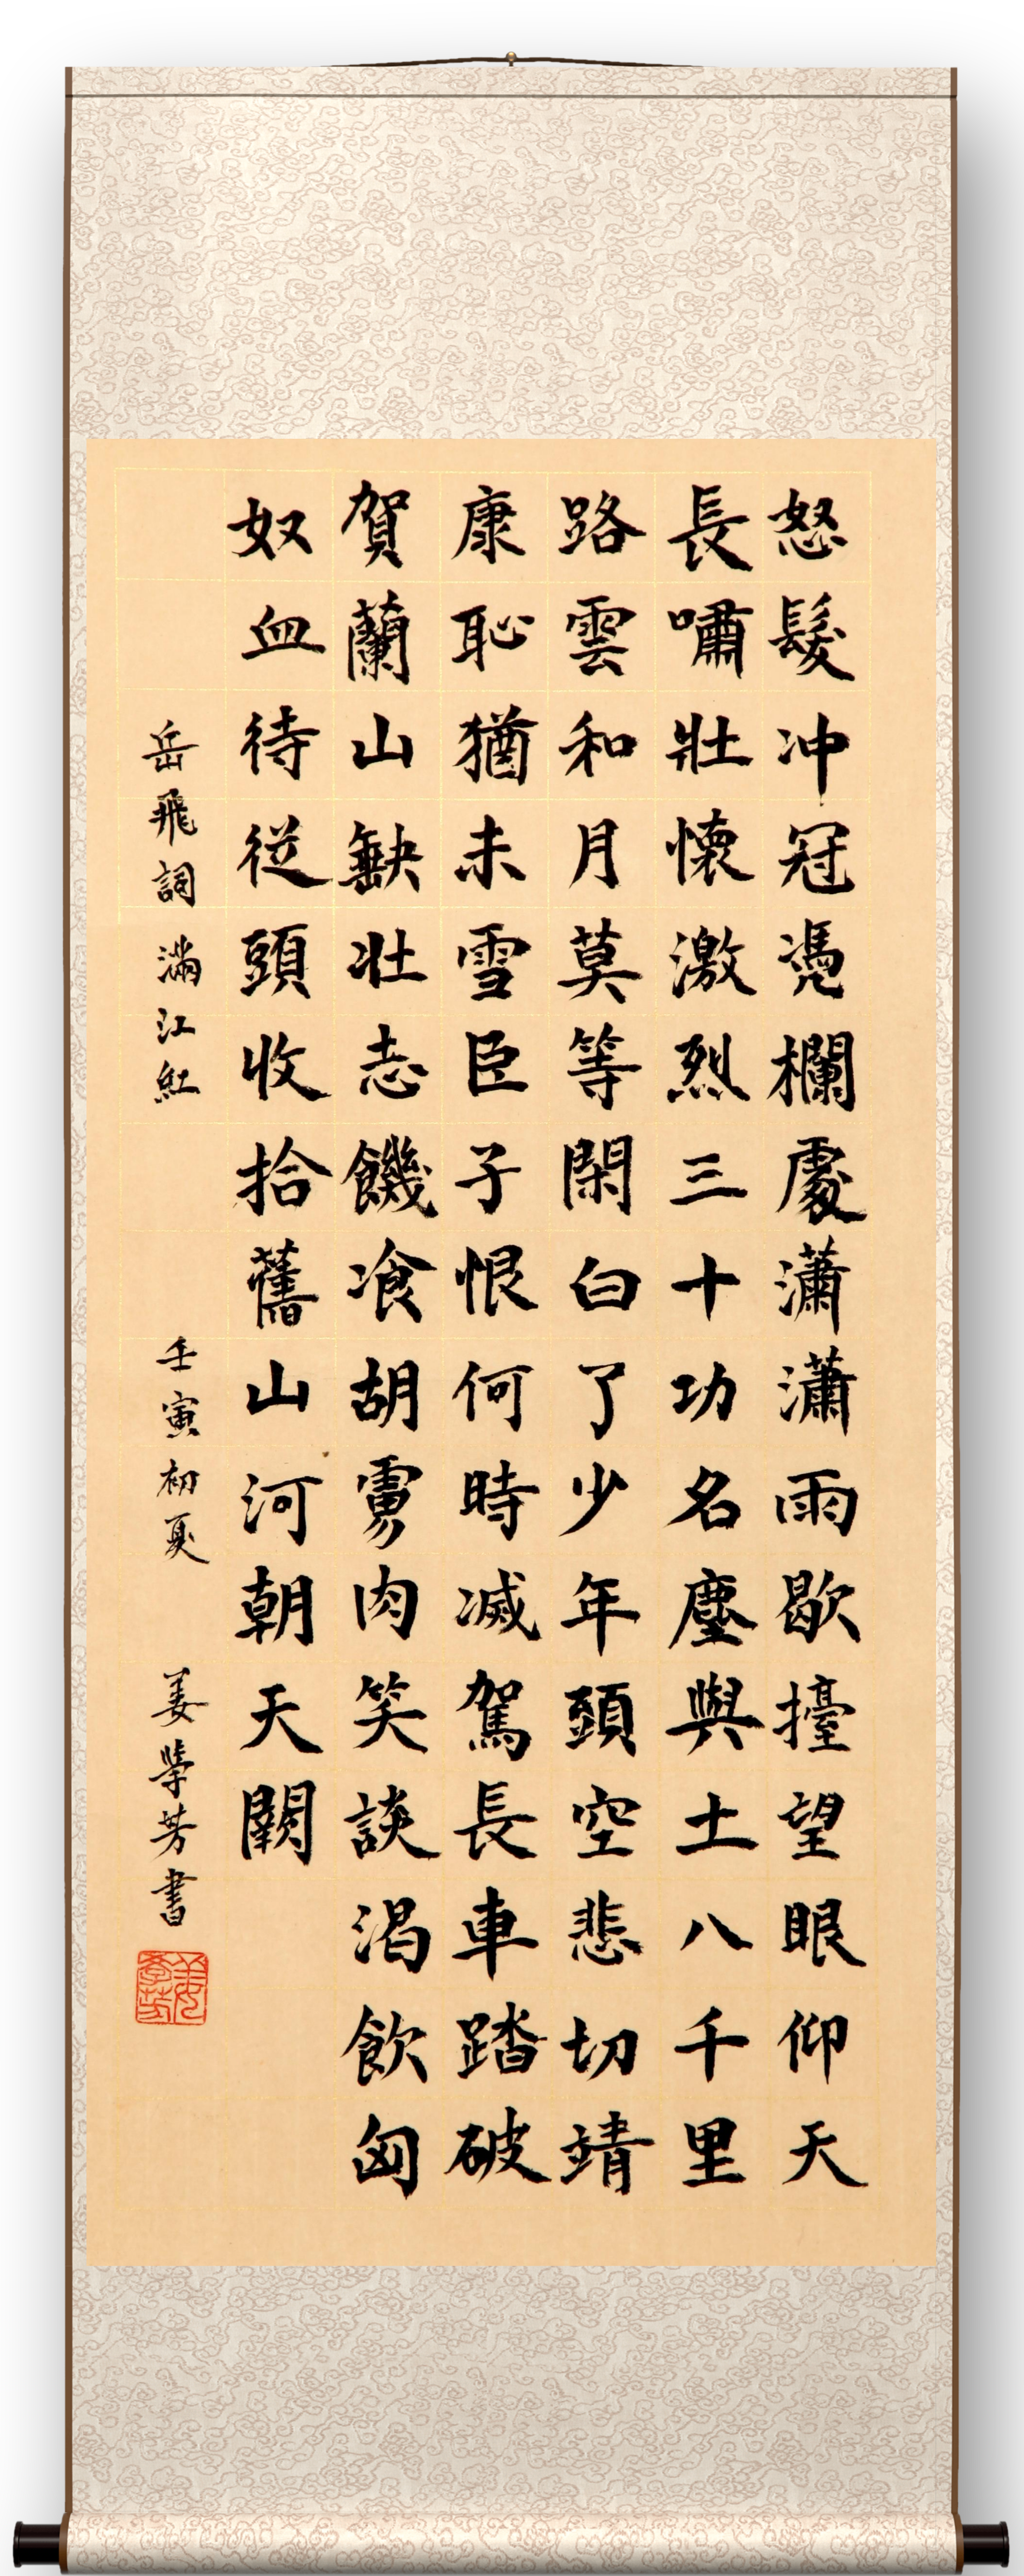 怒髮冲冠憑欄處瀟瀟雨歇擡望眼仰天
長嘯壯懷激烈三十功名塵與土八千里
路雲和月莫等閑白了少年頭空悲切靖
康恥猶未雪臣子恨何時滅駕長車踏破
賀蘭山缺壯志饑飡胡虜肉笑談渴飲匈
奴血待從頭收拾舊山河朝天闕
岳飛詞滿江紅 壬寅初夏 姜學芳書